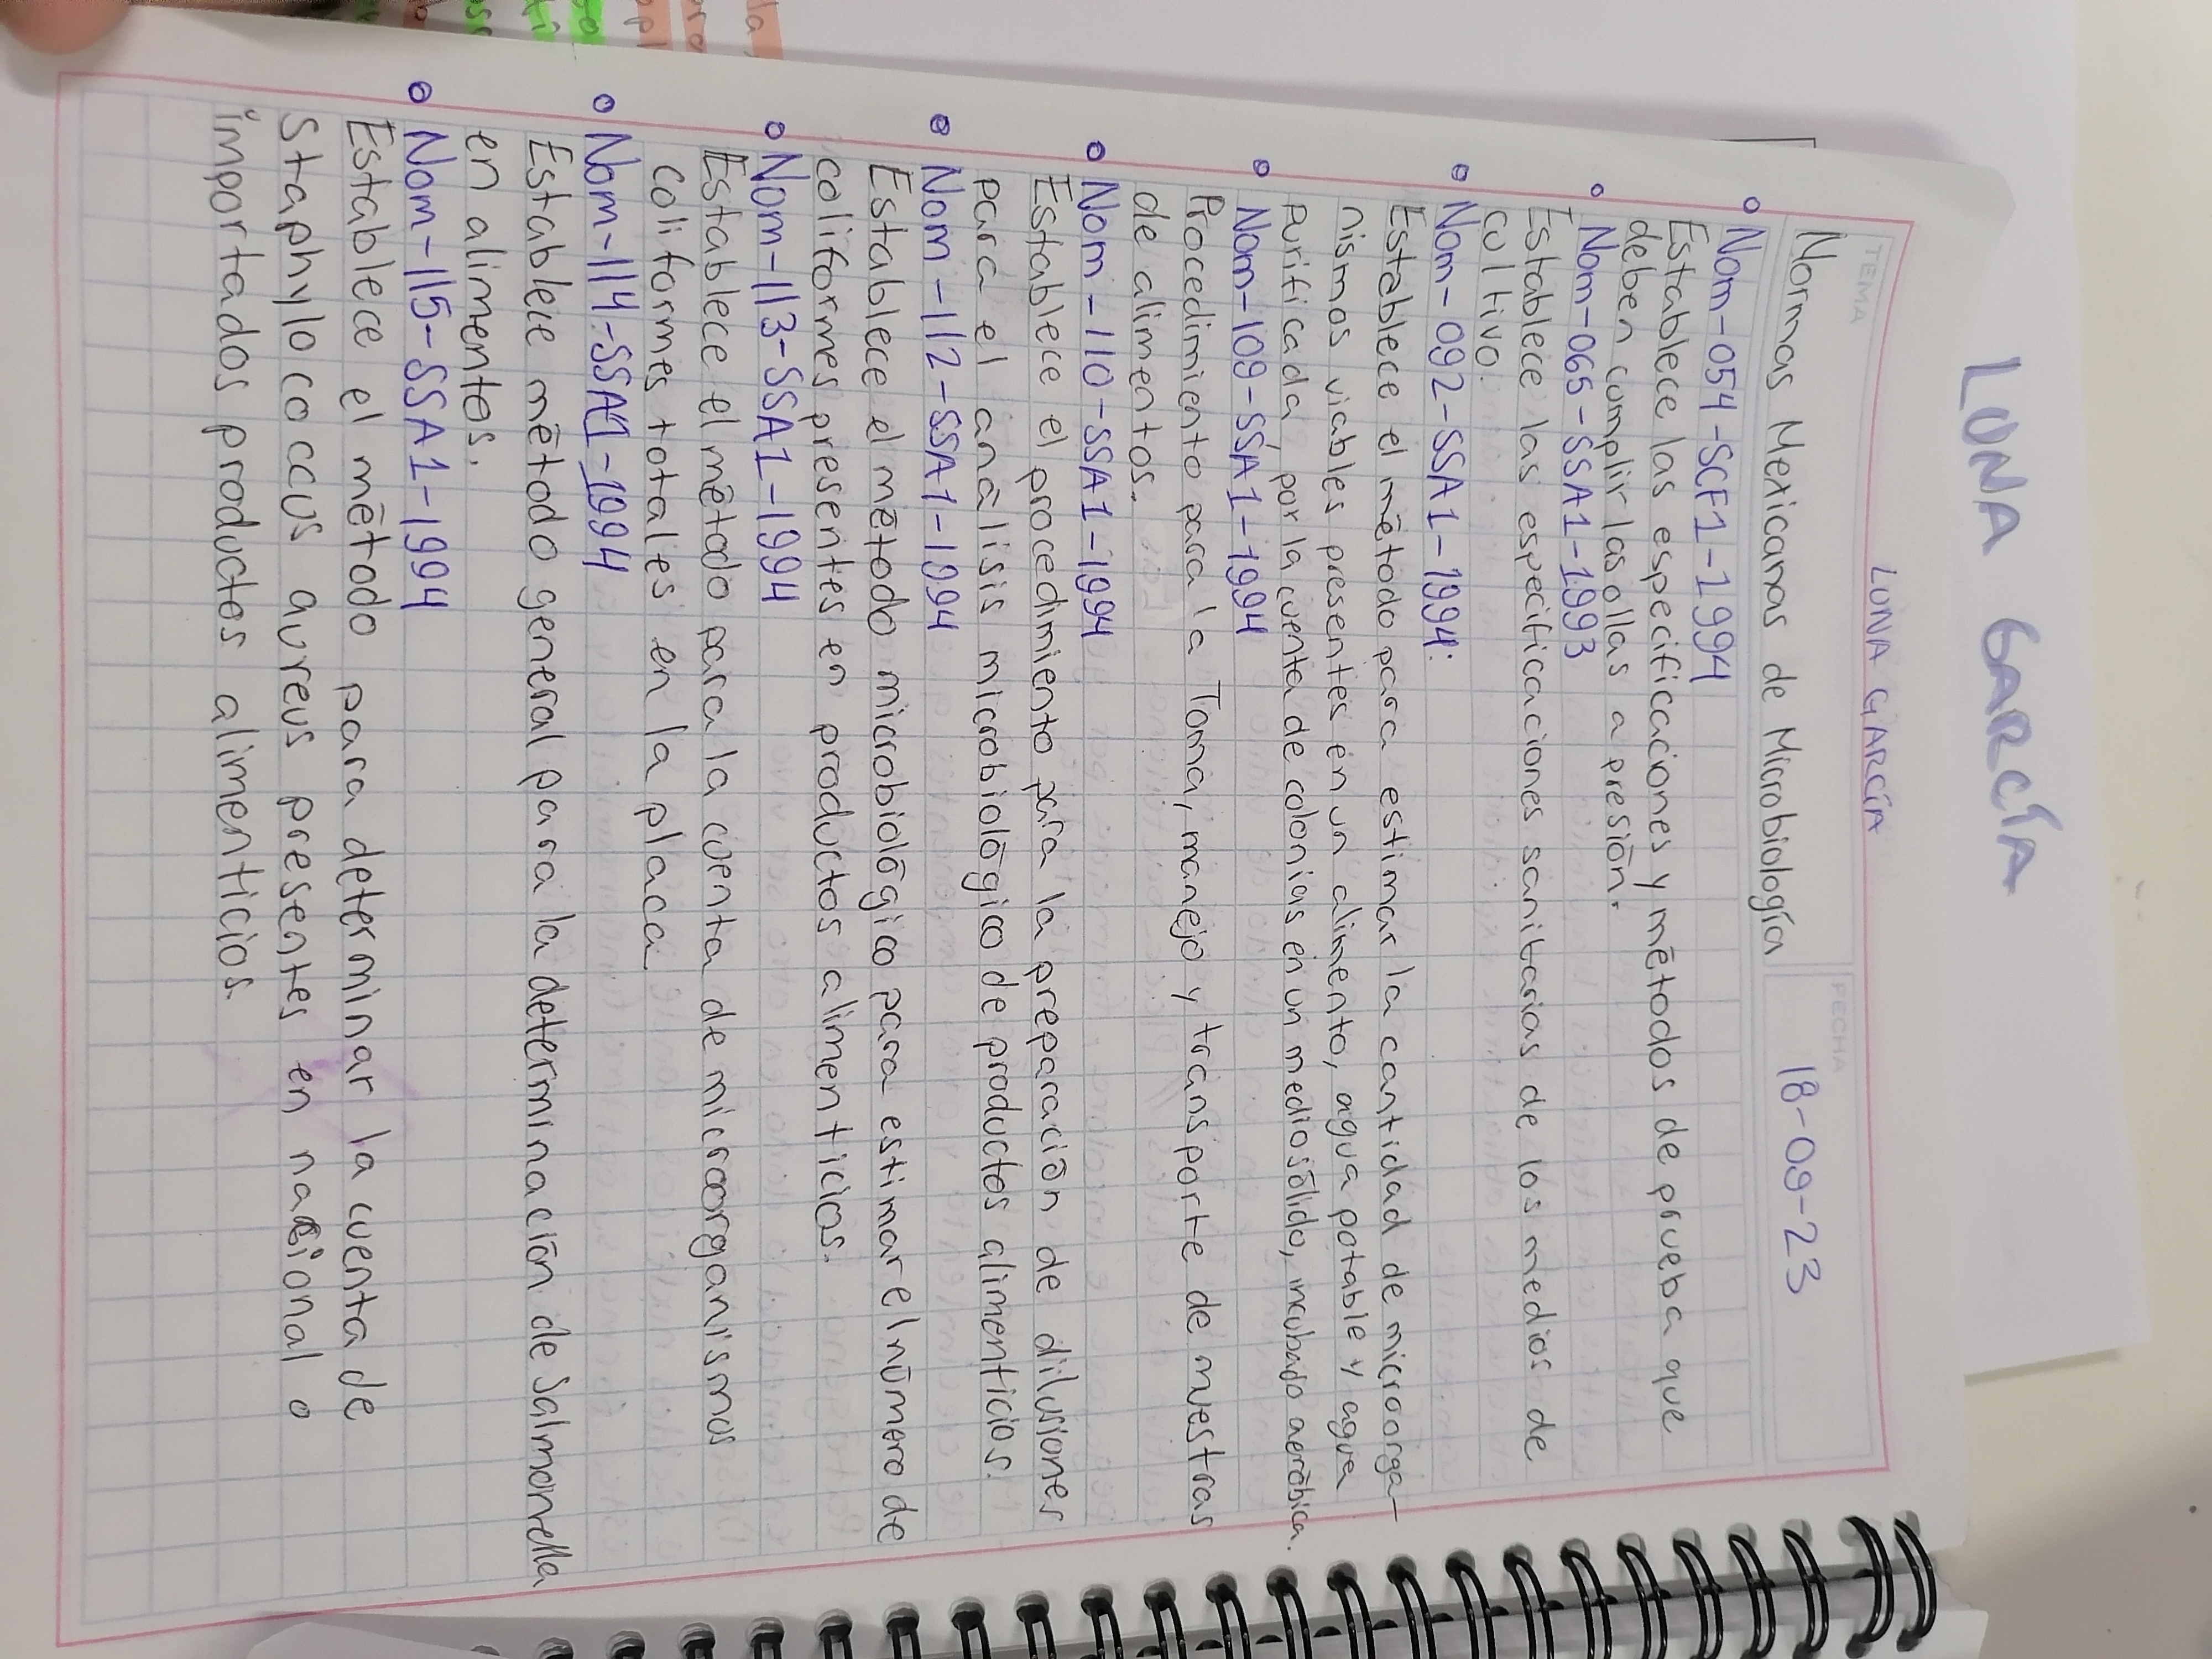 LUNA GARCÍA
LUNA GARCÍA
TEMA
FECHA
Normas Mexicanas de Microbiología
18-09-23
Nom-054-SCF1-1994
Establece las especificaciones y métodos de prueba que
deben cumplir las ollas a presión.
Nom-065-SSA1-1993
Establece las especificaciones sanitarias de los medios de
cultivo.
Nom-092-SSA1-1994:
Establece el método para estimar la cantidad de microorga-
nismos viables presentes en un alimento, agua potable y agua
purificada, por la cuenta de colonias en un medio sólido, incubado aeróbica.
Nom-109-SSA1-1994
Procedimiento para la Toma, manejo y transporte de muestras
de alimentos.
Nom-110-SSA1-1994
Establece el procedimiento para la preparación de dilusiones
para el análisis microbiológico de productos alimenticios.
Nom-112-SSA1-1994
Establece el método microbiológico para estimar el número de
coliformes presentes en productos alimenticios.
Nom-113-SSA1-1994
Establece el método para la cuenta de microorganismos
coliformes totales en la placa.
Nom-114-SSA1-1994
Establece método general para la determinación de Salmonella
en alimentos.
Nom-115-SSA1-1994
Establece el método para determinar la cuenta de
Staphylococcus aureus presentes en nacional o
importados productos alimenticios.